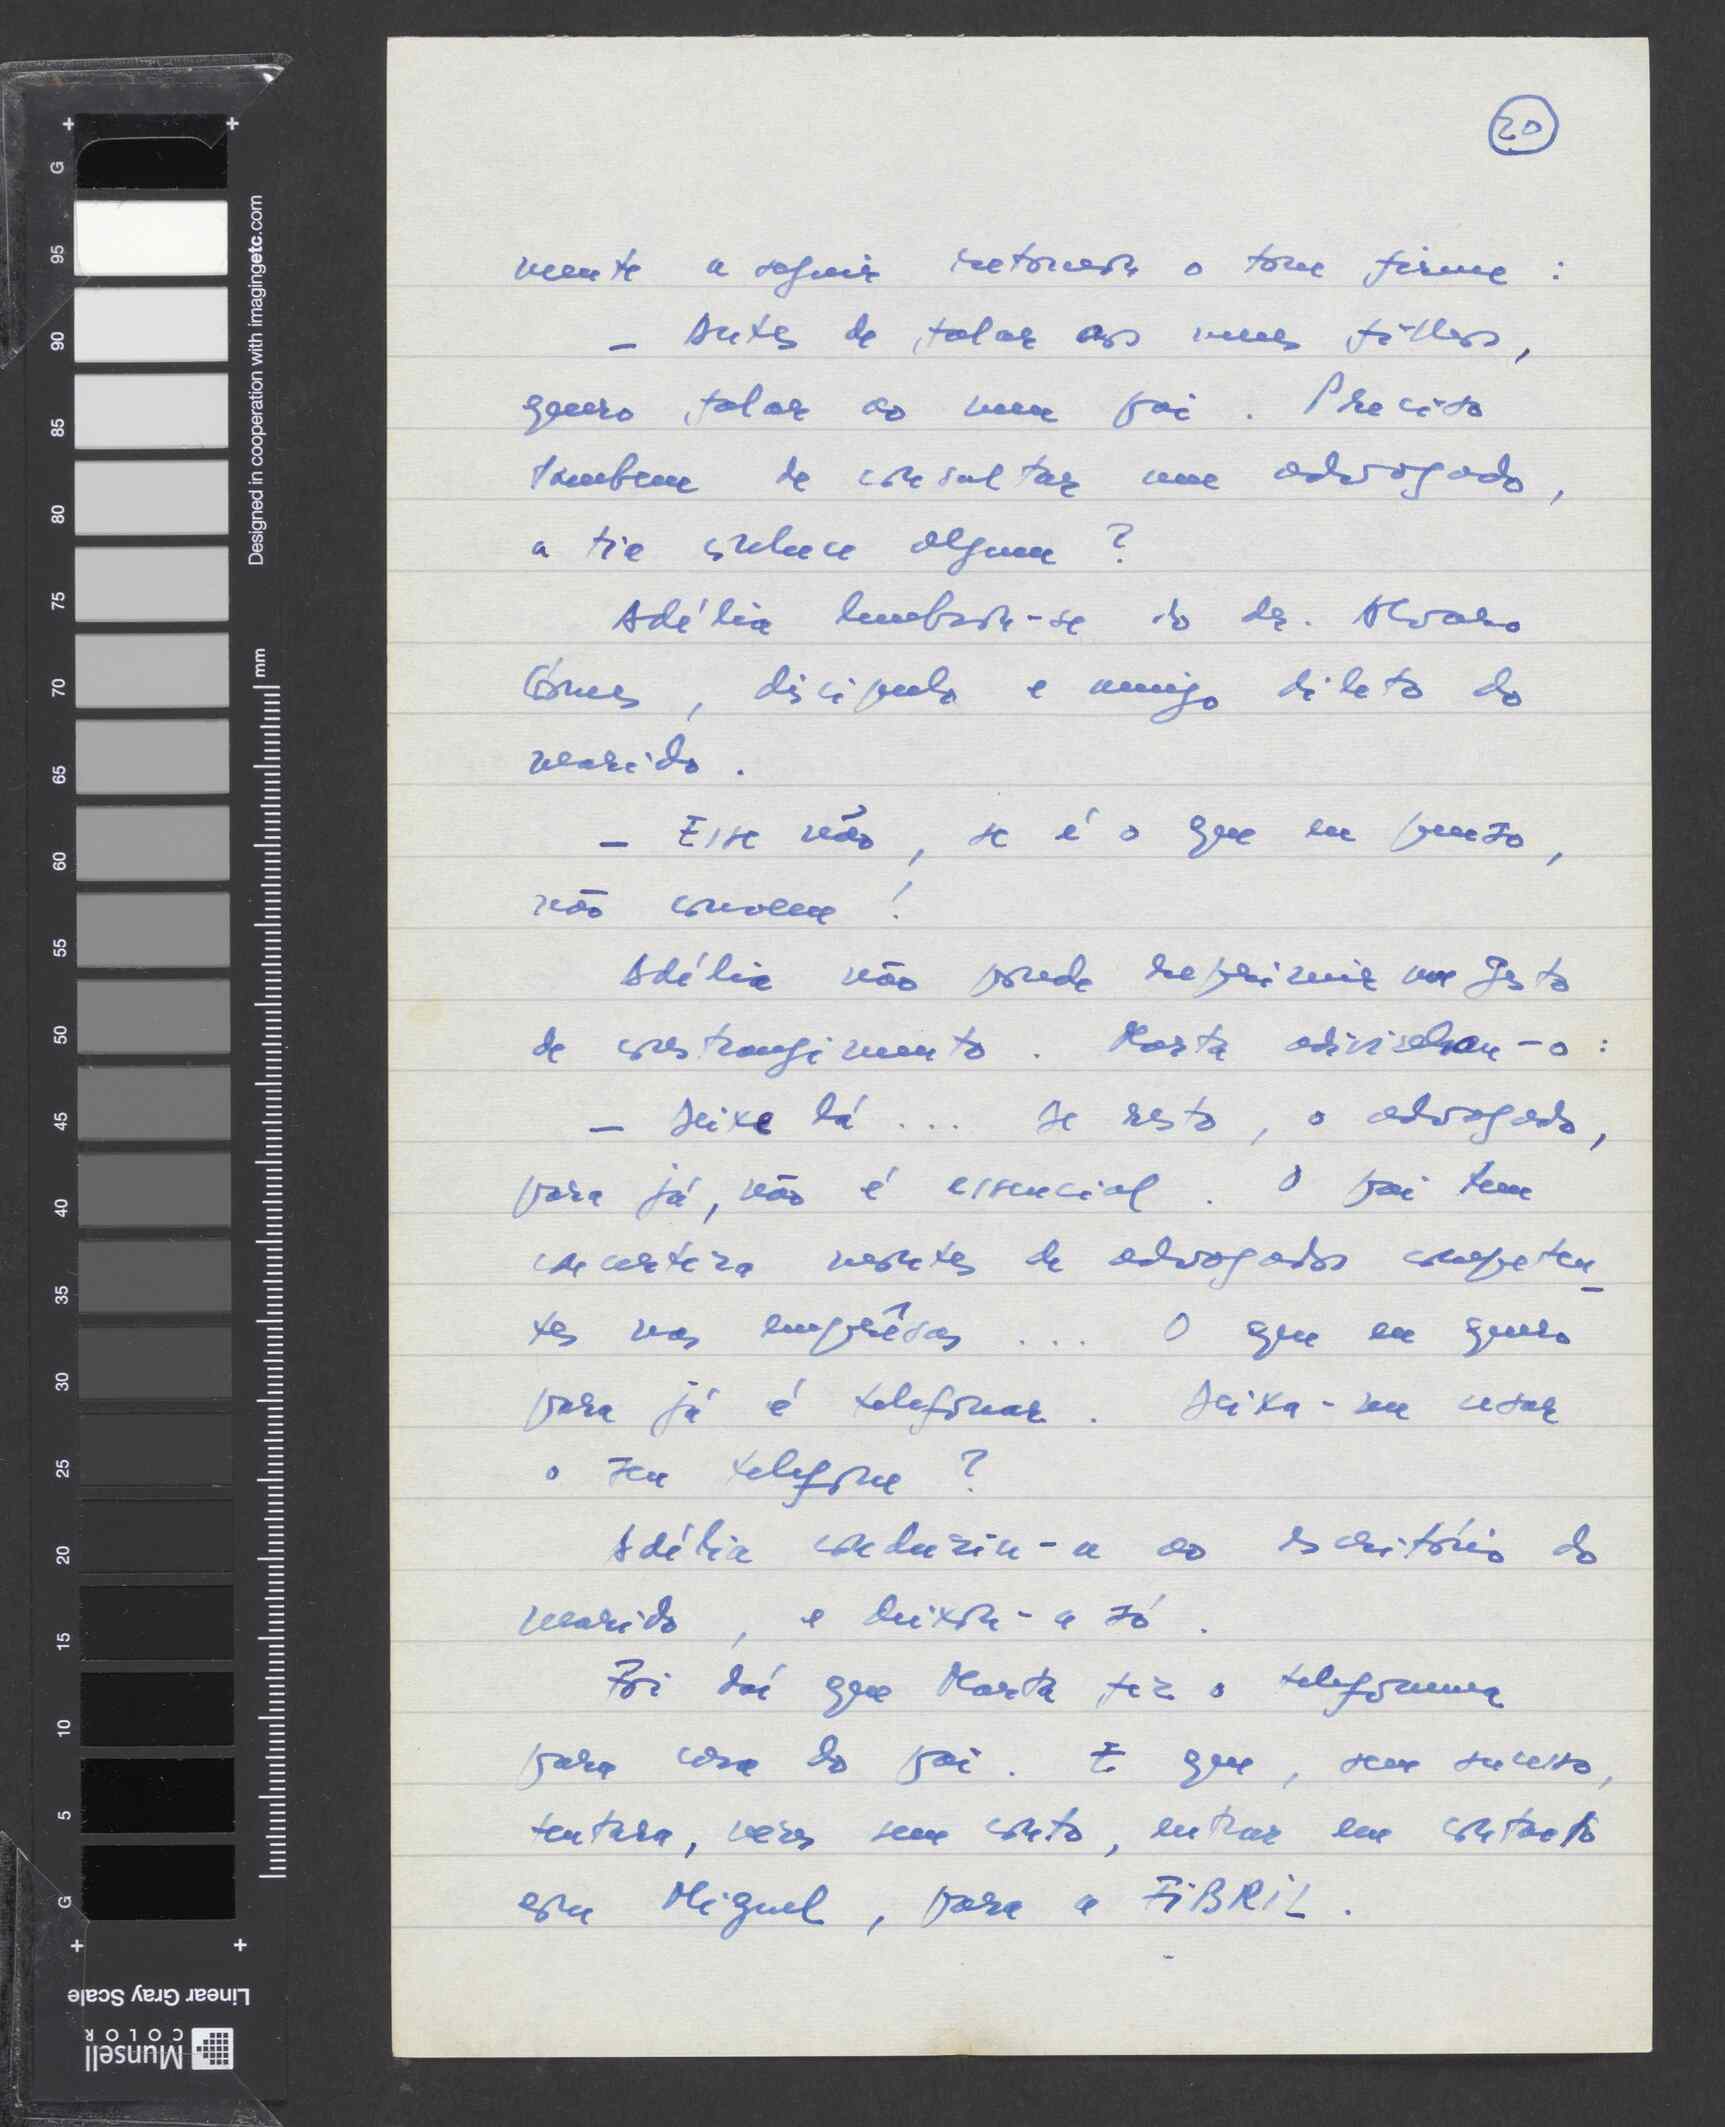 20
mente a seguir retomou o tom firme :
– Antes de falar aos meus filhos,
quero falar ao meu pai. Preciso
tambem de consultar um advogado,
a tia conhece algum ?
Adélia lembrou-se do dr. Alvaro
Gomes, discipulo e amigo dileto do
marido.
– Esse não, se é o que eu penso,
não convem !
Adélia não poude reprimir um gesto
de constrangimento. Marta adivinhou-o :
– Deixe lá ... De resto, o advogado,
para já, não é essencial. O pai tem
concerteza montes de advogados competen-
tes nas emprêsas ... O que eu quero
para já é telefonar. Deixa-me usar
o seu telefone ?
Adélia conduziu-a ao escritório do
marido, e deixou-a só.
Foi daí que Marta fez o telefonema
para casa do pai. E que, sem sucesso,
tentara, vezes sem conto, entrar em contacto
com Miguel, para a FiBRiL.
G
95
90
85
80
75
70
65
60
55
50
45
40
35
30
25
20
15
10
5
G
mm
Designed in cooperation with imagingetc.com
Linear Gray Scale
Munsell
COLOR